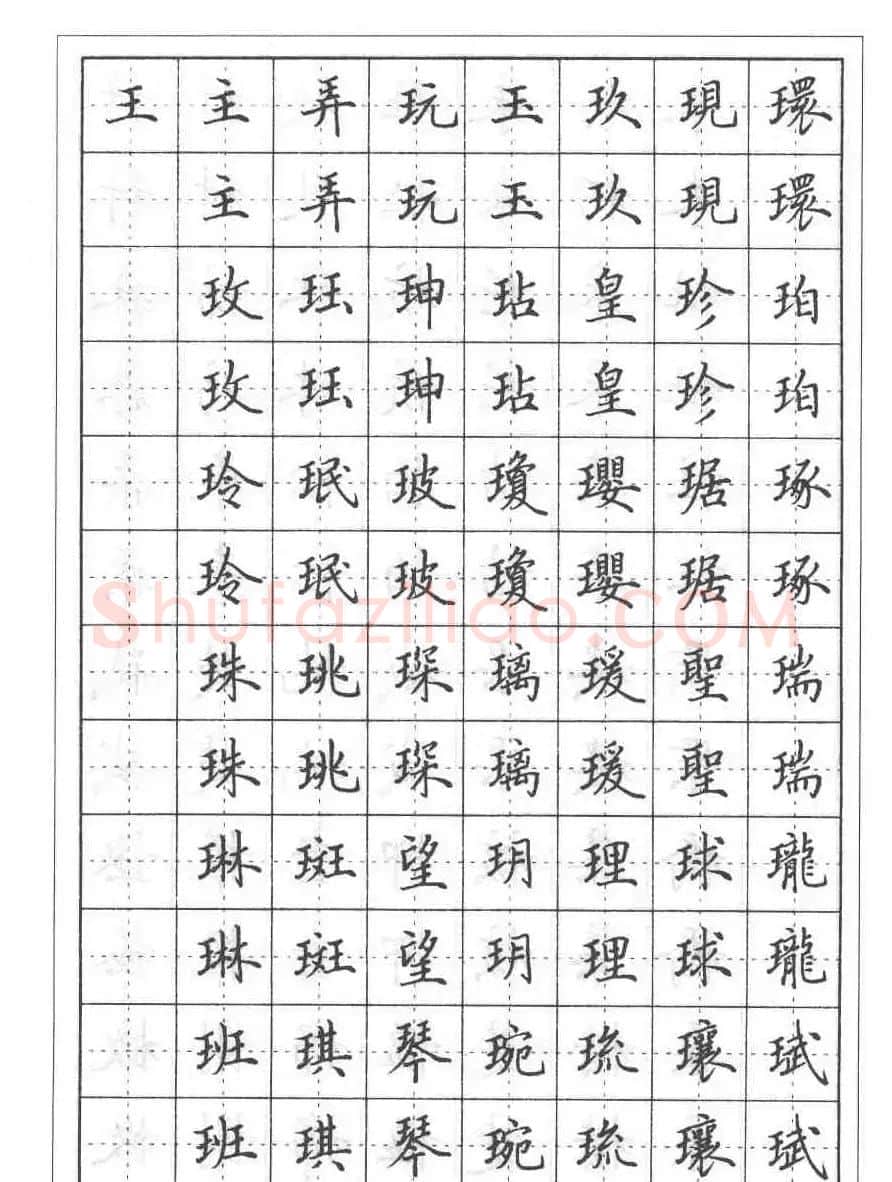 王主弄玩玉玖現環
主弄玩玉玖現環
玫玨珅玷皇珍珀
玫玨珅玷皇珍珀
玲珉玻瓊瓔琚琢
玲珉玻瓊瓔琚琢
珠珧琛璃瑗聖瑞
珠珧琛璃瑗聖瑞
琳斑望玥理球瓏
琳斑望玥理球瓏
班琪琴琬琉瓖珷
班琪琴琬琉瓖珷
Shufaziliao.COM